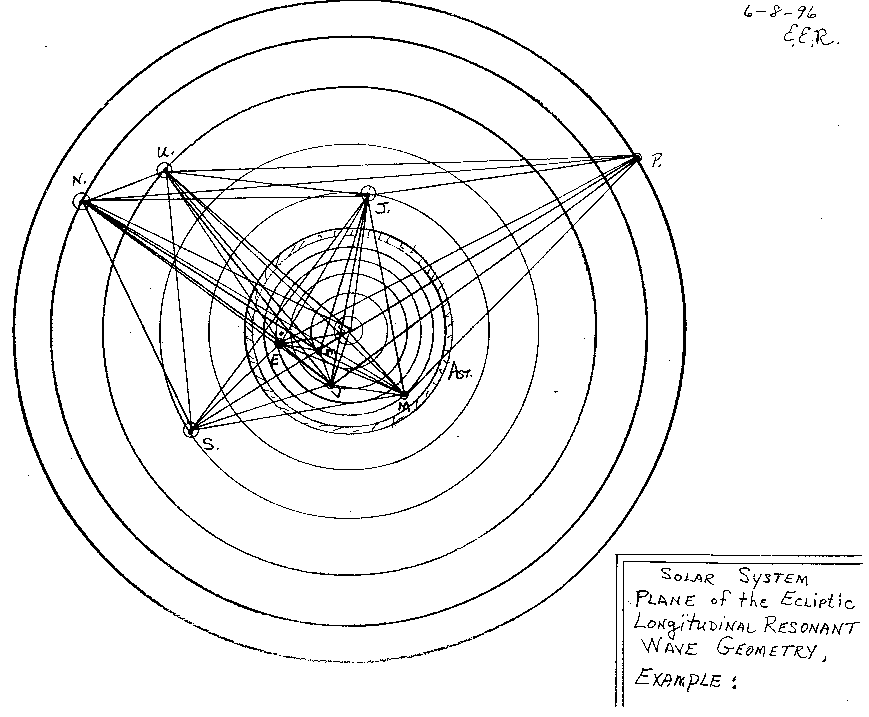 6-8-96
E.E.R.
U.
N.
P.
J.
E
m
V
M
Ast.
S.
Solar System
Plane of the Ecliptic
Longitudinal Resonant
Wave Geometry,
Example: